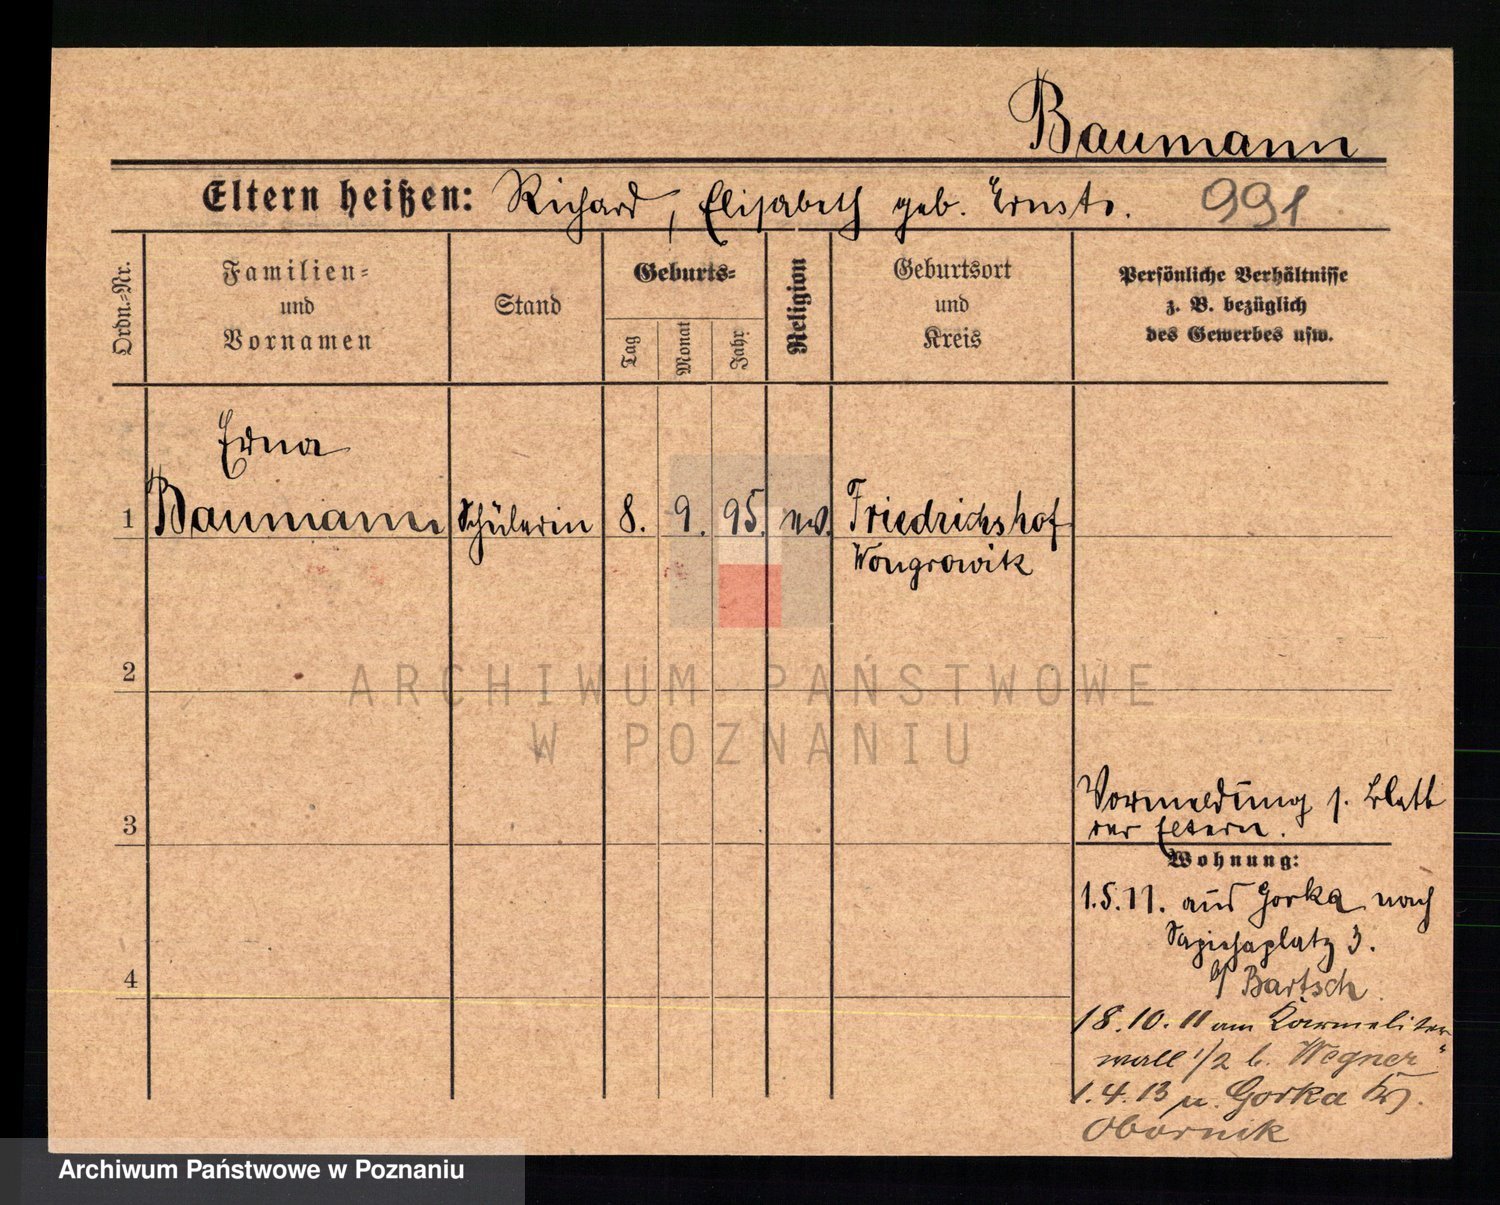 Baumann
Eltern heißen: Richard, Elisabeth geb. Ernst. 991
Ordn.-Nr.
Familien-
und
Vornamen
Stand
Geburts-
Tag
Monat
Jahr
Religion
Geburtsort
und
Kreis
Persönliche Verhältnisse
z. B. bezüglich
des Gewerbes usw.
Erna
1 Baumann Schülerin 8. 9. 95. ev. Friedrichshof
Wongrowitz
2
3
4
Vormeldung s. Blatt
der Eltern.
Wohnung:
1.5.11. aus Gorka nach
Sapiehaplatz 3.
b/ Bartsch
18.10.11 am Karmeliter
wall 1/2 b. Wegner
1.4.13 n. Gorka Kr.
Obornik
ARCHIWUM PAŃSTWOWE
W POZNANIU
Archiwum Państwowe w Poznaniu